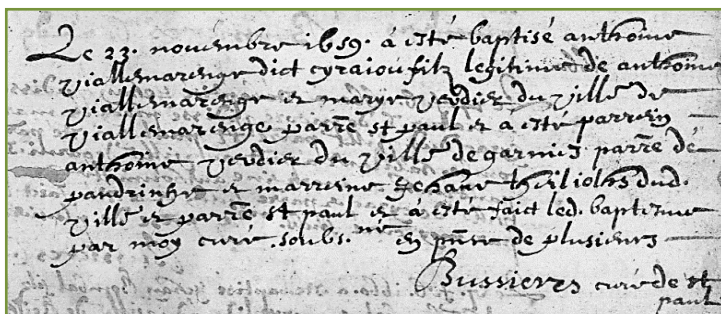 Le 23. novembre 1659. a esté baptisé anthoine
viallemarenge dict cyraiou filz legitime de anthoine
viallemarenge et marye verdier du villē de
viallemarenge parrē st paul et a esté parrein
anthoine verdier du villē de garnies parrē de
pandrinhe et marreine Jehane theiliohs dud.
villē et parrē st paul et a esté faict led. baptesme
par moy curé soubs.né en pnce de plusieurs
Bussieres curé de st
paul